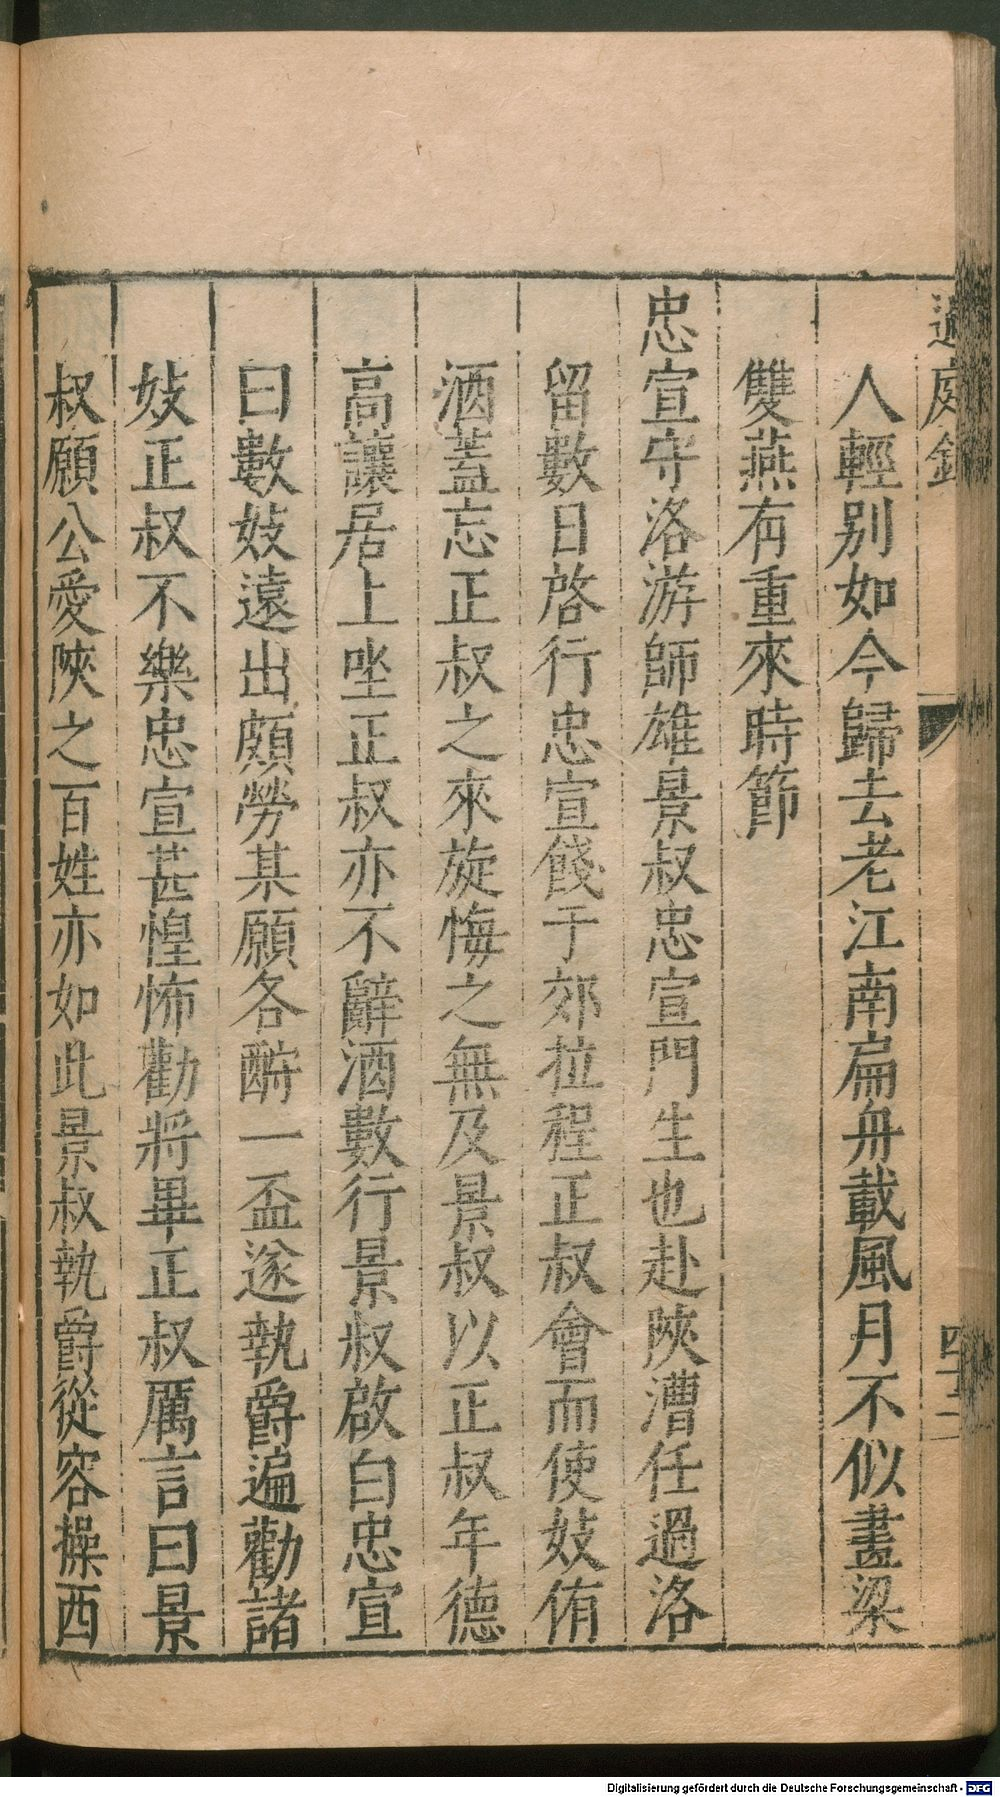 過庭錄
四十二
人輕别如今歸去老江南扁舟載風月不似畫梁
雙燕有重來時節
忠宣守洛游師雄景叔忠宣門生也赴陜漕任過洛
留數日啓行忠宣餞于郊拉程正叔會而使妓侑
酒蓋忘正叔之來旋悔之無及景叔以正叔年德
高讓居上坐正叔亦不辭酒數行景叔啟白忠宣
曰數妓遠出頗勞某願各酹一盃遂執爵遍勸諸
妓正叔不樂忠宣甚惶怖勸將畢正叔厲言曰景
叔願公愛陜之百姓亦如此景叔執爵從容操西
Digitalisierung gefördert durch die Deutsche Forschungsgemeinschaft - DFG